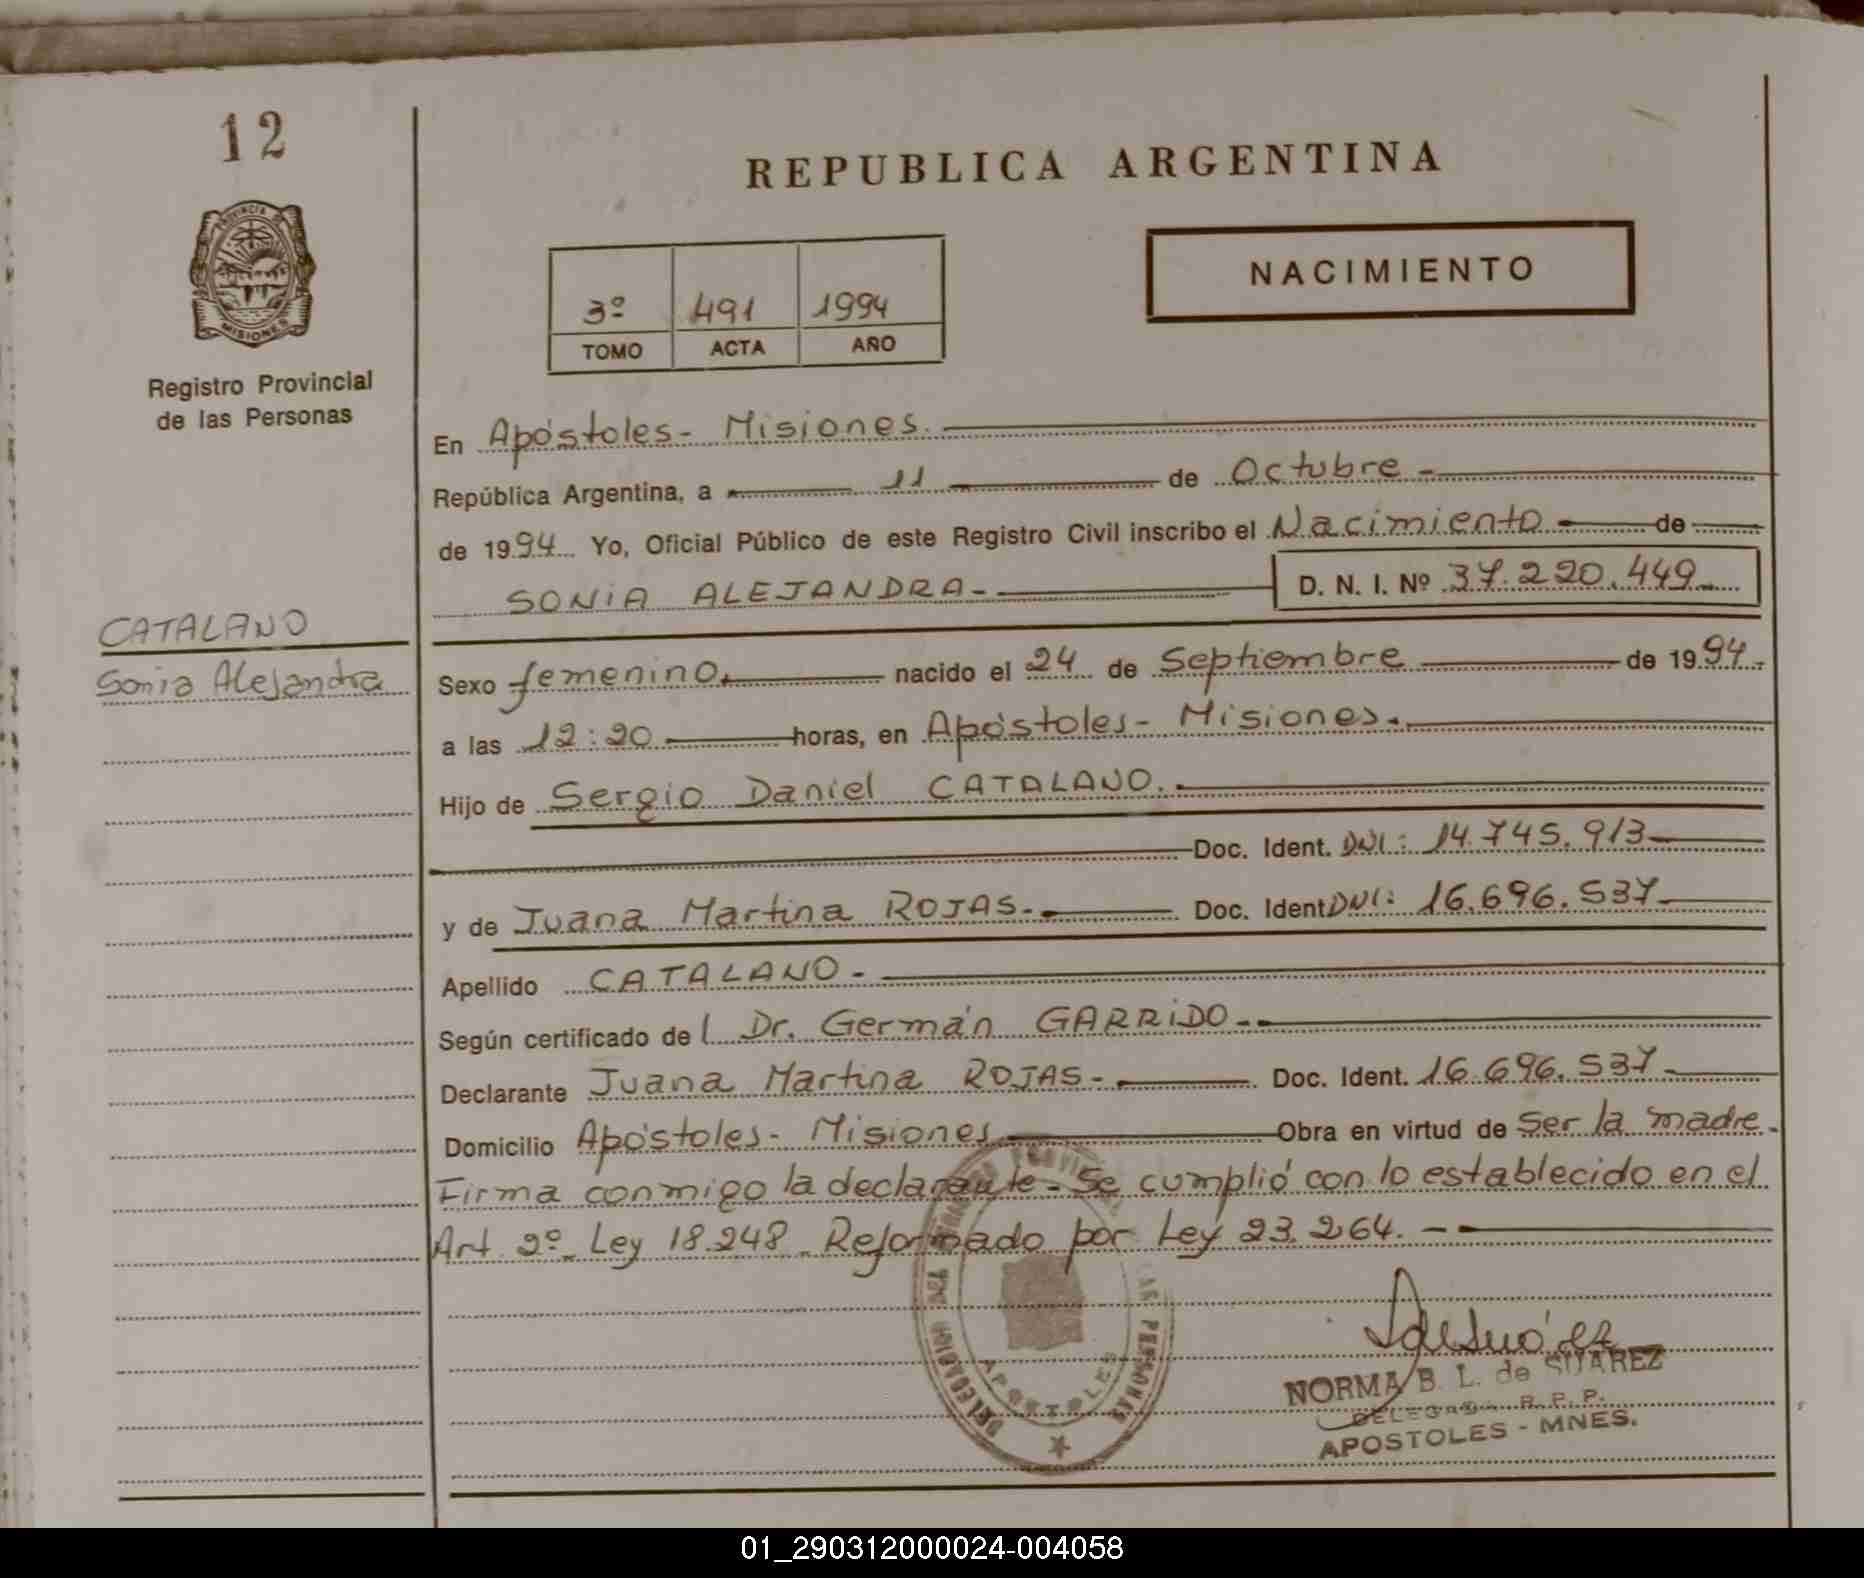 12
REPUBLICA ARGENTINA
PROVINCIA DE
MISIONES
Registro Provincial
de las Personas
3º 491 1994
TOMO ACTA AÑO
NACIMIENTO
En Apóstoles- Misiones.
República Argentina, a 11 de Octubre -
de 1994 Yo, Oficial Público de este Registro Civil inscribo el Nacimiento de
SONIA ALEJANDRA- D. N. I. Nº 37.220.449-
CATALANO
Sonia Alejandra
Sexo femenino. nacido el 24 de Septiembre de 1994.
a las 12:20 horas, en Apóstoles- Misiones.
Hijo de Sergio Daniel CATALANO.
Doc. Ident. DNI: 14.745.913
y de Juana Martina ROJAS- Doc. Ident DNI: 16.696.537-
Apellido CATALANO-
Según certificado de l Dr. Germán GARRIDO-
Declarante Juana Martina ROJAS- Doc. Ident. 16.696.537-
Domicilio Apóstoles- Misiones Obra en virtud de ser la madre-
Firma conmigo la declarante- Se cumplió con lo establecido en el
Art 2º Ley 18.248 Reformado por Ley 23.264. -
APOSTOLES
NORMA B. L. de SUAREZ
DELEGADA R. P. P.
APOSTOLES - MNES.
01_290312000024-004058